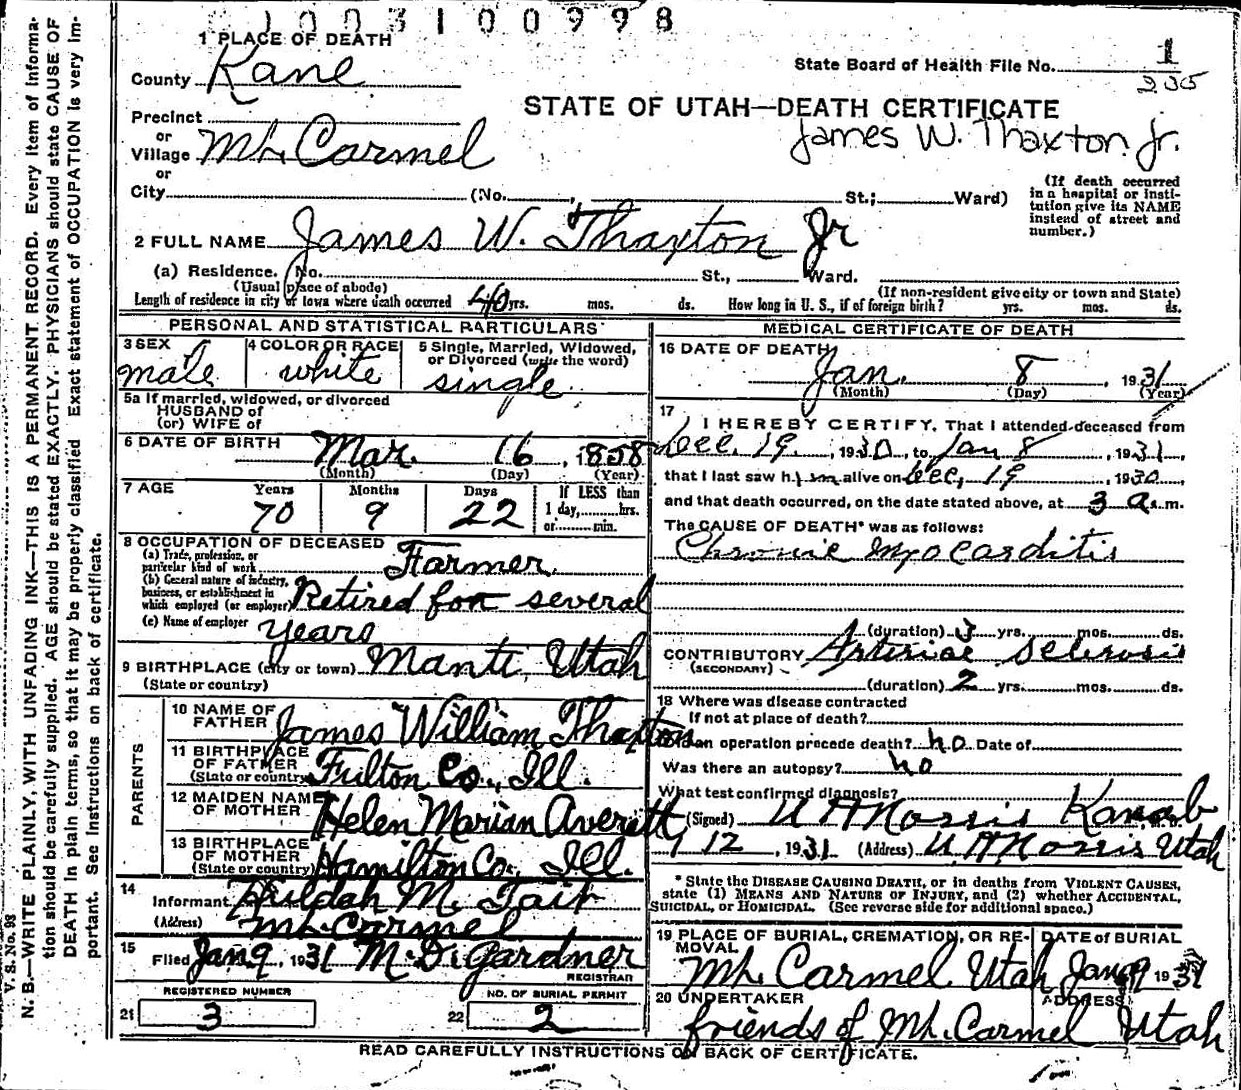 1003100998
1 PLACE OF DEATH
County Kane
State Board of Health File No. 1
235
STATE OF UTAH—DEATH CERTIFICATE
James W. Thaxton Jr.
Precinct
or
Village Mt. Carmel
or
City (No. St.; Ward)
(If death occurred in a hospital or institution give its NAME instead of street and number.)
2 FULL NAME James W. Thaxton Jr
(a) Residence. No. St., Ward.
(Usual place of abode)
(If non-resident give city or town and State)
Length of residence in city or town where death occurred 40 yrs. mos. ds. How long in U. S., if of foreign birth? yrs. mos. ds.
PERSONAL AND STATISTICAL PARTICULARS
3 SEX
male
4 COLOR OR RACE
white
5 Single, Married, Widowed, or Divorced (write the word)
single
5a If married, widowed, or divorced
HUSBAND of
(or) WIFE of
6 DATE OF BIRTH
Mar. 16, 1858
(Month) (Day) (Year)
7 AGE
Years Months Days
70 9 22
If LESS than
1 day, hrs.
or min.
8 OCCUPATION OF DECEASED
(a) Trade, profession, or particular kind of work Farmer.
(b) General nature of industry, business, or establishment in which employed (or employer) Retired for several
(c) Name of employer years
9 BIRTHPLACE (city or town) Manti, Utah
(State or country)
PARENTS
10 NAME OF FATHER James William Thaxton
11 BIRTHPLACE OF FATHER (State or country) Fulton Co., Ill.
12 MAIDEN NAME OF MOTHER Helen Marian Averett
13 BIRTHPLACE OF MOTHER (State or country) Hamilton Co., Ill.
14
Informant Huldah M. Tait
(Address) Mt. Carmel
15
Filed Jan 9, 1931 M. D. Gardner
REGISTRAR
REGISTERED NUMBER
21 3
NO. OF BURIAL PERMIT
22 2
MEDICAL CERTIFICATE OF DEATH
16 DATE OF DEATH
Jan. 8, 1931
(Month) (Day) (Year)
17
I HEREBY CERTIFY, That I attended deceased from
Dec. 19, 1930, to Jan 8, 1931,
that I last saw him alive on Dec, 19, 1930,
and that death occurred, on the date stated above, at 3 a.m.
The CAUSE OF DEATH* was as follows:
Chronic Myocarditis
(duration) 3 yrs. mos. ds.
CONTRIBUTORY Arteriae Sclerosis
(SECONDARY)
(duration) 2 yrs. mos. ds.
18 Where was disease contracted
If not at place of death?
Did an operation precede death? no Date of
Was there an autopsy? no
What test confirmed diagnosis?
(Signed) U A Norris Kanab
1/12, 1931 (Address) U A Norris Utah
* State the DISEASE CAUSING DEATH, or in deaths from VIOLENT CAUSES, state (1) MEANS AND NATURE OF INJURY, and (2) whether ACCIDENTAL, SUICIDAL, or HOMICIDAL. (See reverse side for additional space.)
19 PLACE OF BURIAL, CREMATION, OR REMOVAL
Mt. Carmel Utah
DATE of BURIAL
Jan 9 1931
20 UNDERTAKER
ADDRESS
friends of Mt. Carmel Utah
READ CAREFULLY INSTRUCTIONS ON BACK OF CERTIFICATE.
V. S. No. 98
N. B.—WRITE PLAINLY, WITH UNFADING INK—THIS IS A PERMANENT RECORD. Every item of information should be carefully supplied. AGE should be stated EXACTLY. PHYSICIANS should state CAUSE OF DEATH in plain terms, so that it may be properly classified Exact statement of OCCUPATION is very important. See Instructions on back of certificate.